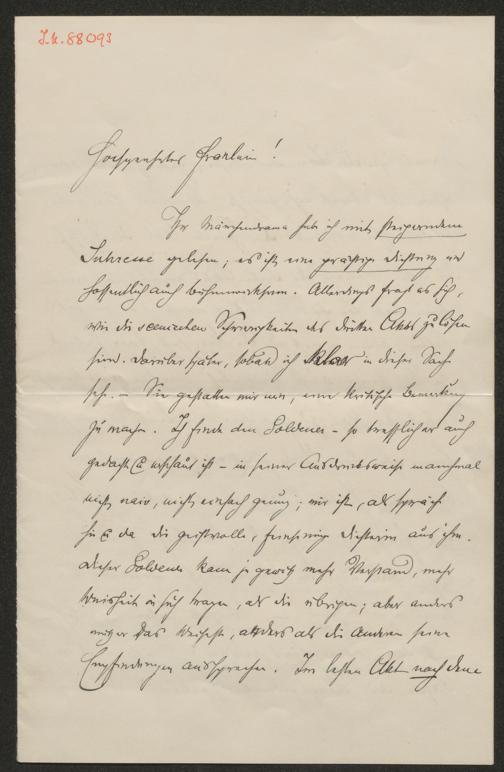 I.N. 88093
Hochgeehrtes Fräulein!
Ihr Märchendrama habe ich mit steigerndem
Interesse gelesen; es ist eine prächtige Dichtung und
hoffentlich auch bühnenwirksam. Allerdings fragt es sich,
wie die scenischen Schwierigkeiten des dritten Akts zu lösen
sind. Darüber später, sobald ich klar in dieser Sache
sehe. – Sie gestatten mir nun, eine kritische Bemerkung
zu machen. Ich finde den Goldener – so trefflich er auch
gedacht u ist – in seiner Ausdrucksweise manchmal
nicht naiv, nicht einfach genug; mir ist, als spräche
hie u da die geistvolle, feinsinnige Dichterin aus ihm.
Dieser Goldener kann ja gewiß mehr Verstand, mehr
Weisheit in sich tragen, als die übrigen; aber anders
möge er das, anders als die Anderen seine
Empfindungen aussprechen. Im letzten Akt nach dem